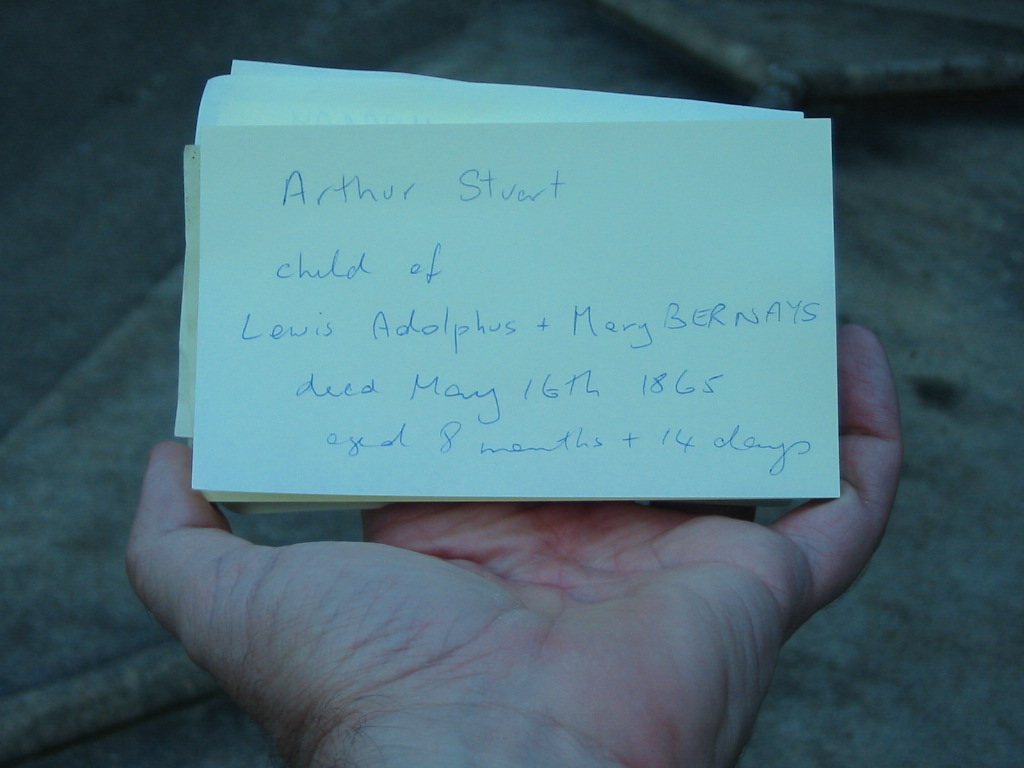 Arthur Stuart
child of
Lewis Adolphus + Mary BERNAYS
died May 16th 1865
aged 8 months + 14 days